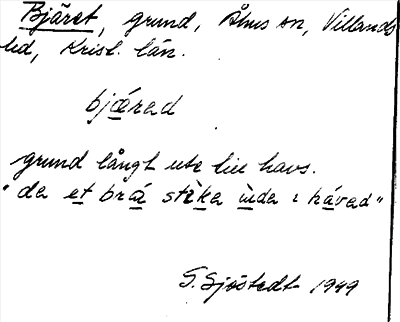 Bjäret, grund, Åhus sn, Villands
hd, Krist. län.
bjærad
grund långt ute till havs.
"da et brá stèka ùda i håvad"
G. Sjöstedt 1949